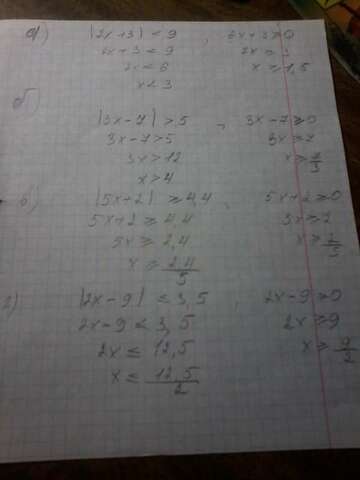 а) |2x+3| < 9 , 2x+3 ≥ 0
2x+3 < 9 2x ≥
2x < 6 x ≥ -1,5
x < 3
б) |3x-7| > 5 , 3x-7 ≥ 0
3x-7 > 5 3x ≥ 7
3x > 12 x ≥ 7/3
x > 4
в) |5x+2| ≥ 4,4 , 5x+2 ≥ 0
5x+2 ≥ 4,4
5x ≥ 2,4
x ≥ 2,4/5
г) |2x-9| ≤ 3,5 , 2x-9 ≥ 0
2x-9 ≤ 3,5 2x ≥ 9
2x ≤ 12,5 x ≥ 9/2
x ≤ 12,5/2